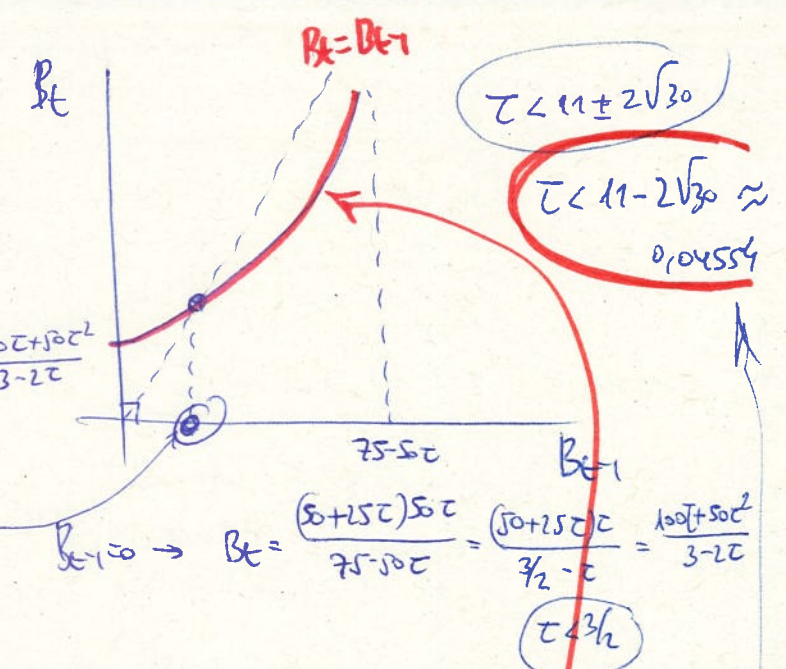 Bt=Bt-1
Bt
τ < 11 ± 2√30
τ < 11 - 2√30 ≈
0,04554
0τ+50τ²
3-2τ
75-50τ
Bt-1
Bt-1=0 → Bt = (50+25τ)50τ / 75-50τ = (50+25τ)τ / 3/2 - τ = 100τ+50τ² / 3-2τ
τ < 3/2